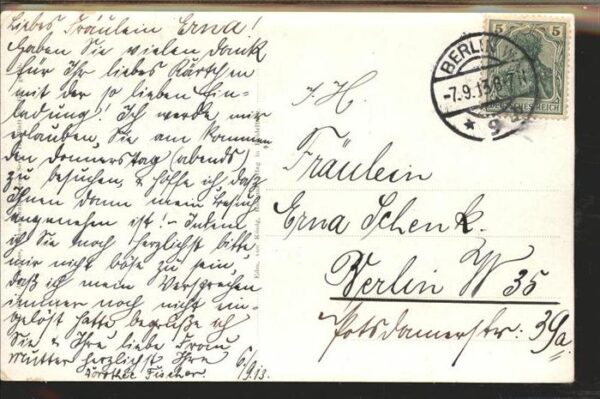 Liebes Fräulein Erna!
Haben Sie vielen Dank
für Ihr liebes Kärtchen
mit der so lieben Ein-
ladung! Ich werde mir
erlauben, Sie am kommen
den Donnerstag (abends)
zu besuchen, & hoffe ich, daß
Ihnen dann mein Besuch
angenehm ist! - Indem
ich Sie noch herzlichst bitte
mir nicht böse zu sein,
daß ich mein Versprechen
immer noch nicht ein-
gelöst hatte begrüße ich
Sie & Ihre liebe Frau
Mutter herzlichst Ihre
Dorothee Fischer.
6/9.13.
5 5
DEUTSCHES REICH
BERLIN W.
-7.9.13.8-7N.
* 9
I. H.
Fräulein
Erna Schenk.
Berlin W 35
Potsdamerstr: 39a.